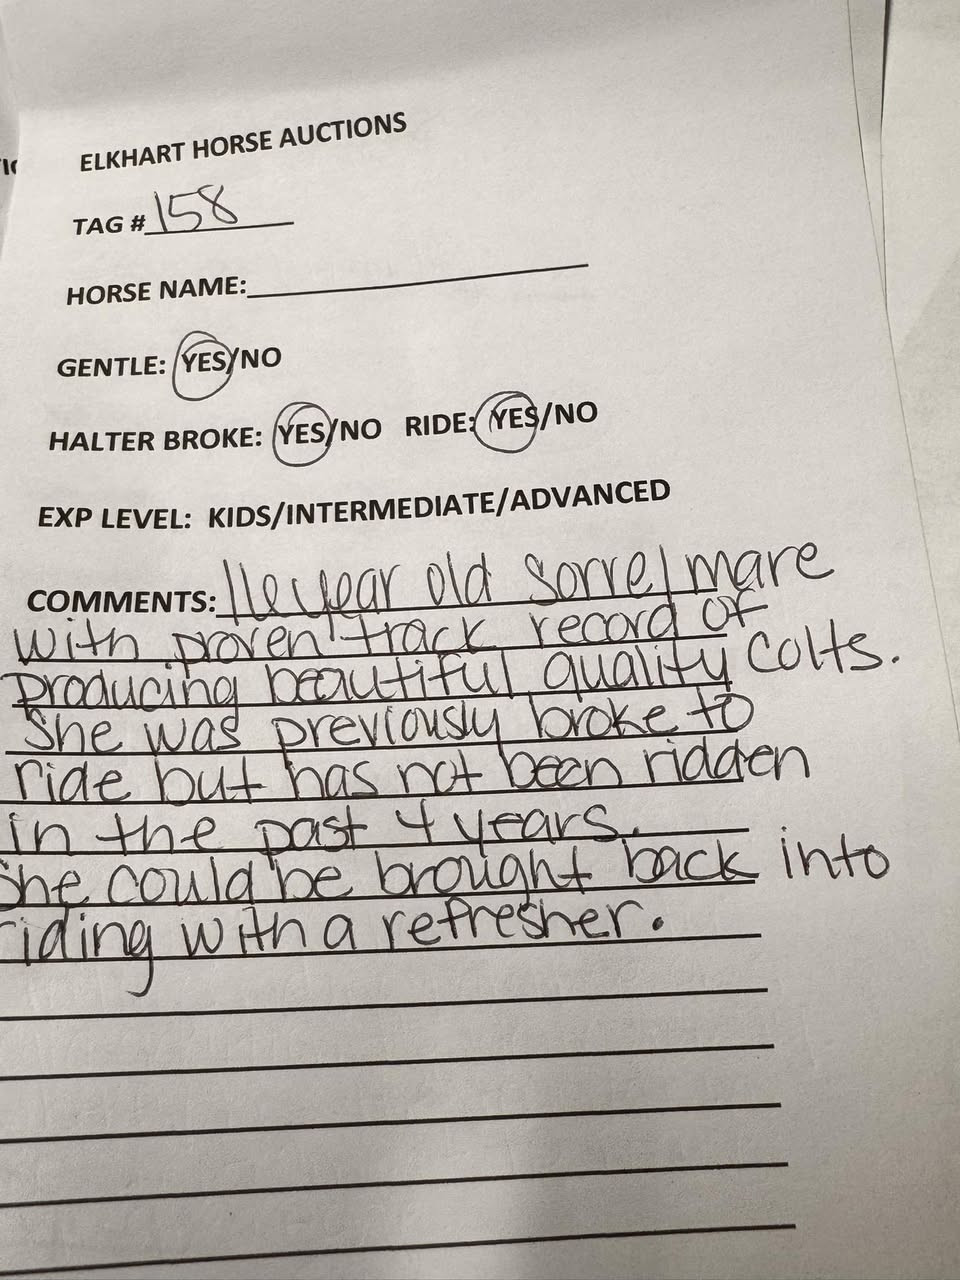 ELKHART HORSE AUCTIONS
TAG # 158
HORSE NAME:
GENTLE: YES/NO
HALTER BROKE: YES/NO RIDE: YES/NO
EXP LEVEL: KIDS/INTERMEDIATE/ADVANCED
COMMENTS: 16 year old Sorrel mare
with proven track record of
producing beautiful quality colts.
She was previously broke to
ride but has not been ridden
in the past 4 years.
She could be brought back into
riding with a refresher.